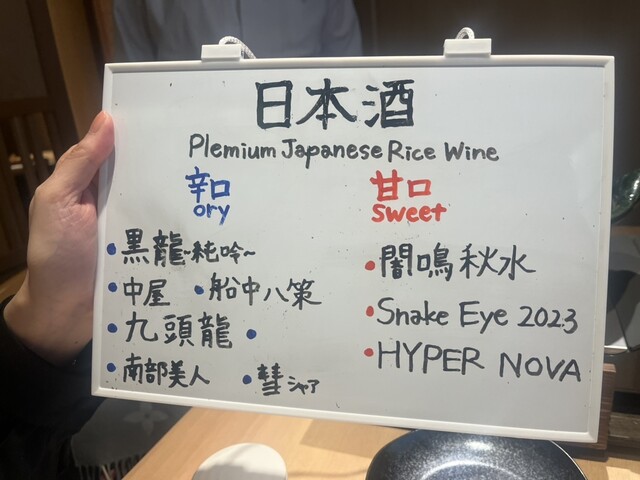 日本酒
Plemium Japanese Rice Wine
辛口
ory
• 黒龍~純吟~
• 中屋 • 船中八策
• 九頭龍 •
• 南部美人 • 彗シャア
甘口
sweet
• 闇鳴秋水
• Snake Eye 2023
• HYPER NOVA